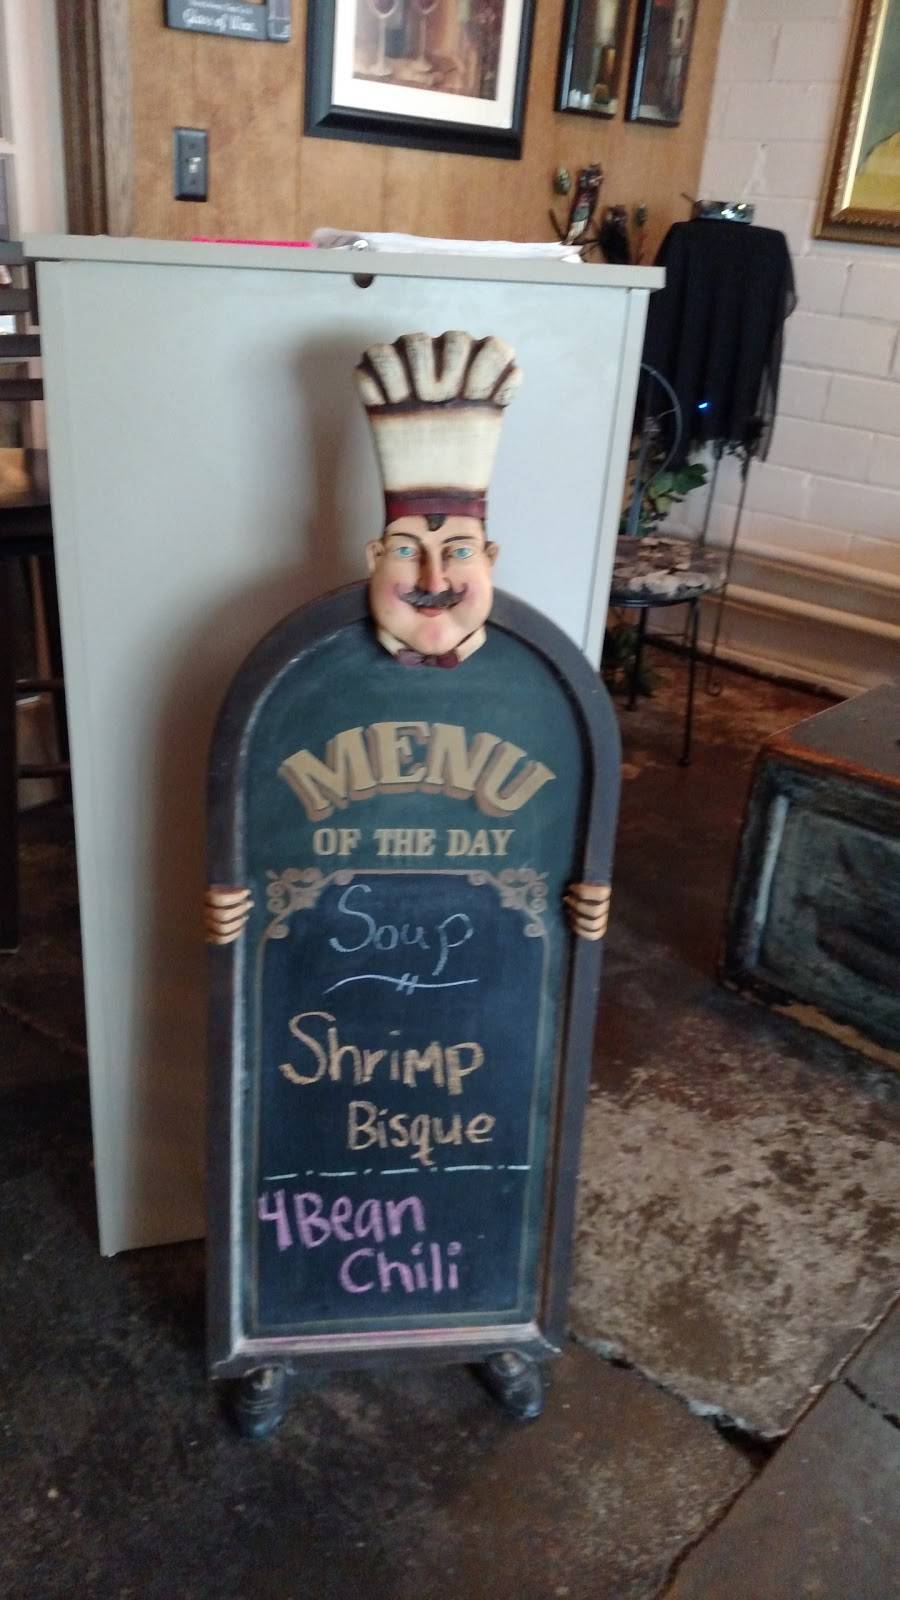 Glass of Wine.
MENU
OF THE DAY
Soup
Shrimp
Bisque
4 Bean
Chili